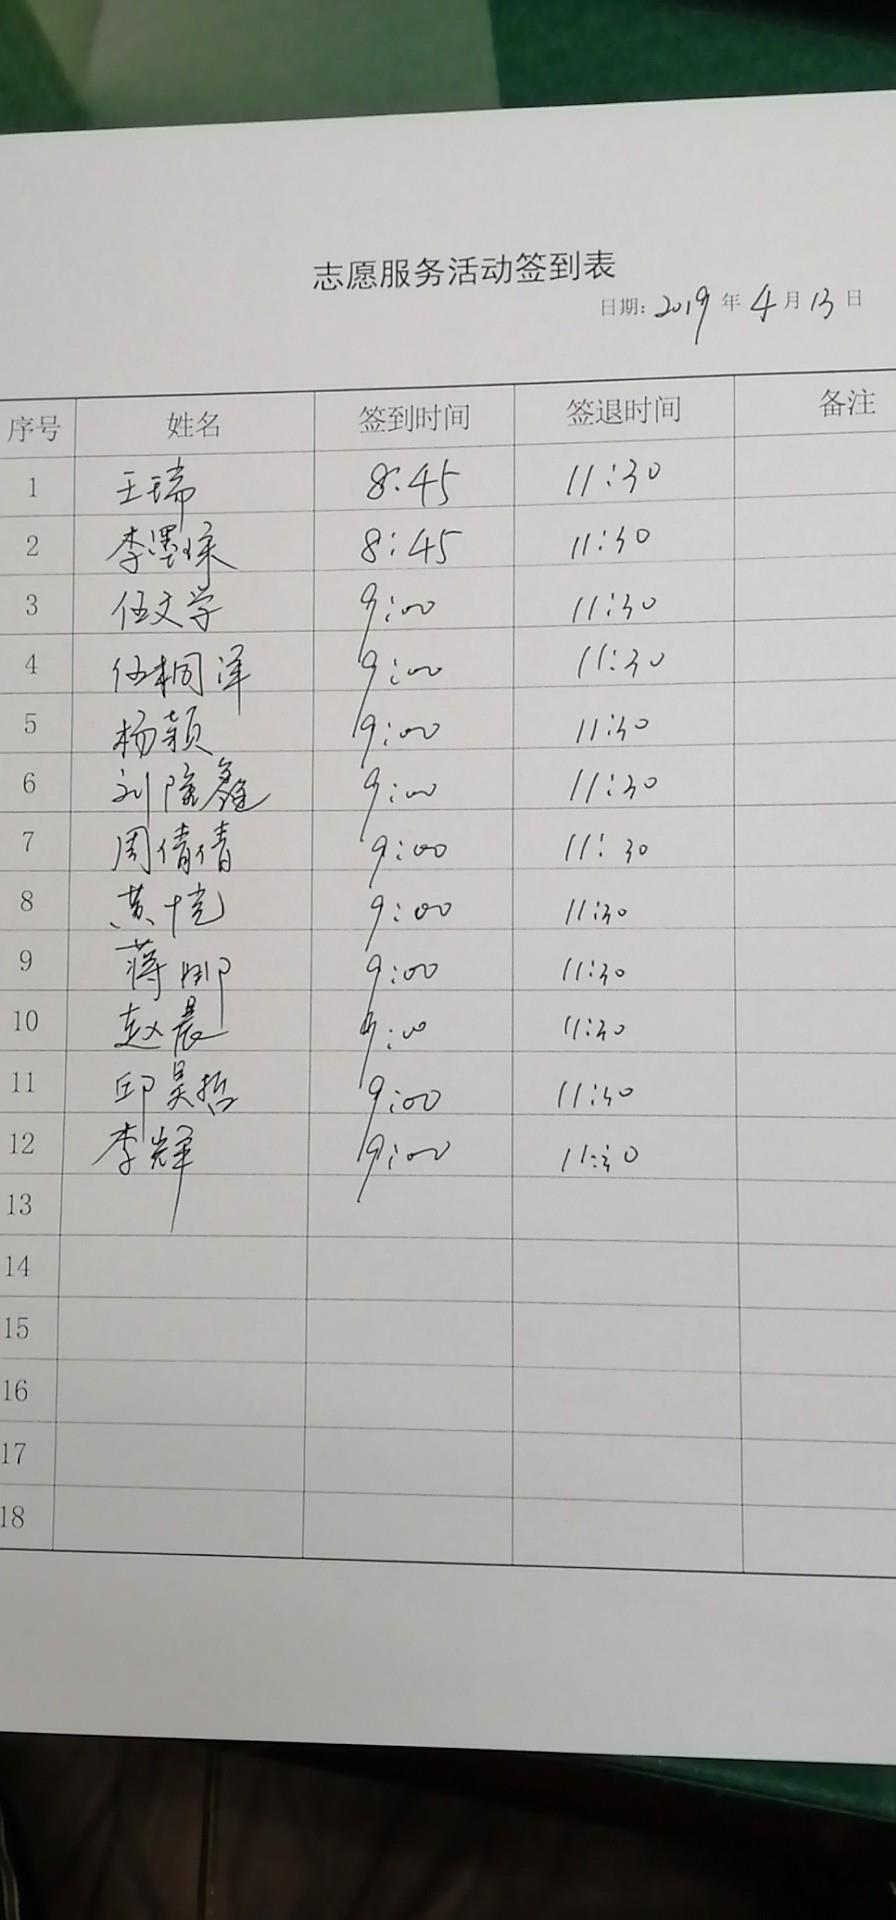 志愿服务活动签到表
日期: 2019 年 4 月 13 日
序号 姓名 签到时间 签退时间 备注
1 王瑞 8:45 11:30
2 李墨 8:45 11:30
3 伍文学 9:00 11:30
4 伍桐泽 9:00 11:30
5 杨颖 9:00 11:30
6 刘隆鑫 9:00 11:30
7 周倩倩 9:00 11:30
8 黄恺 9:00 11:30
9 蒋娜 9:00 11:30
10 赵晨 9:00 11:30
11 邱昊哲 9:00 11:30
12 李辉 9:00 11:30
13
14
15
16
17
18